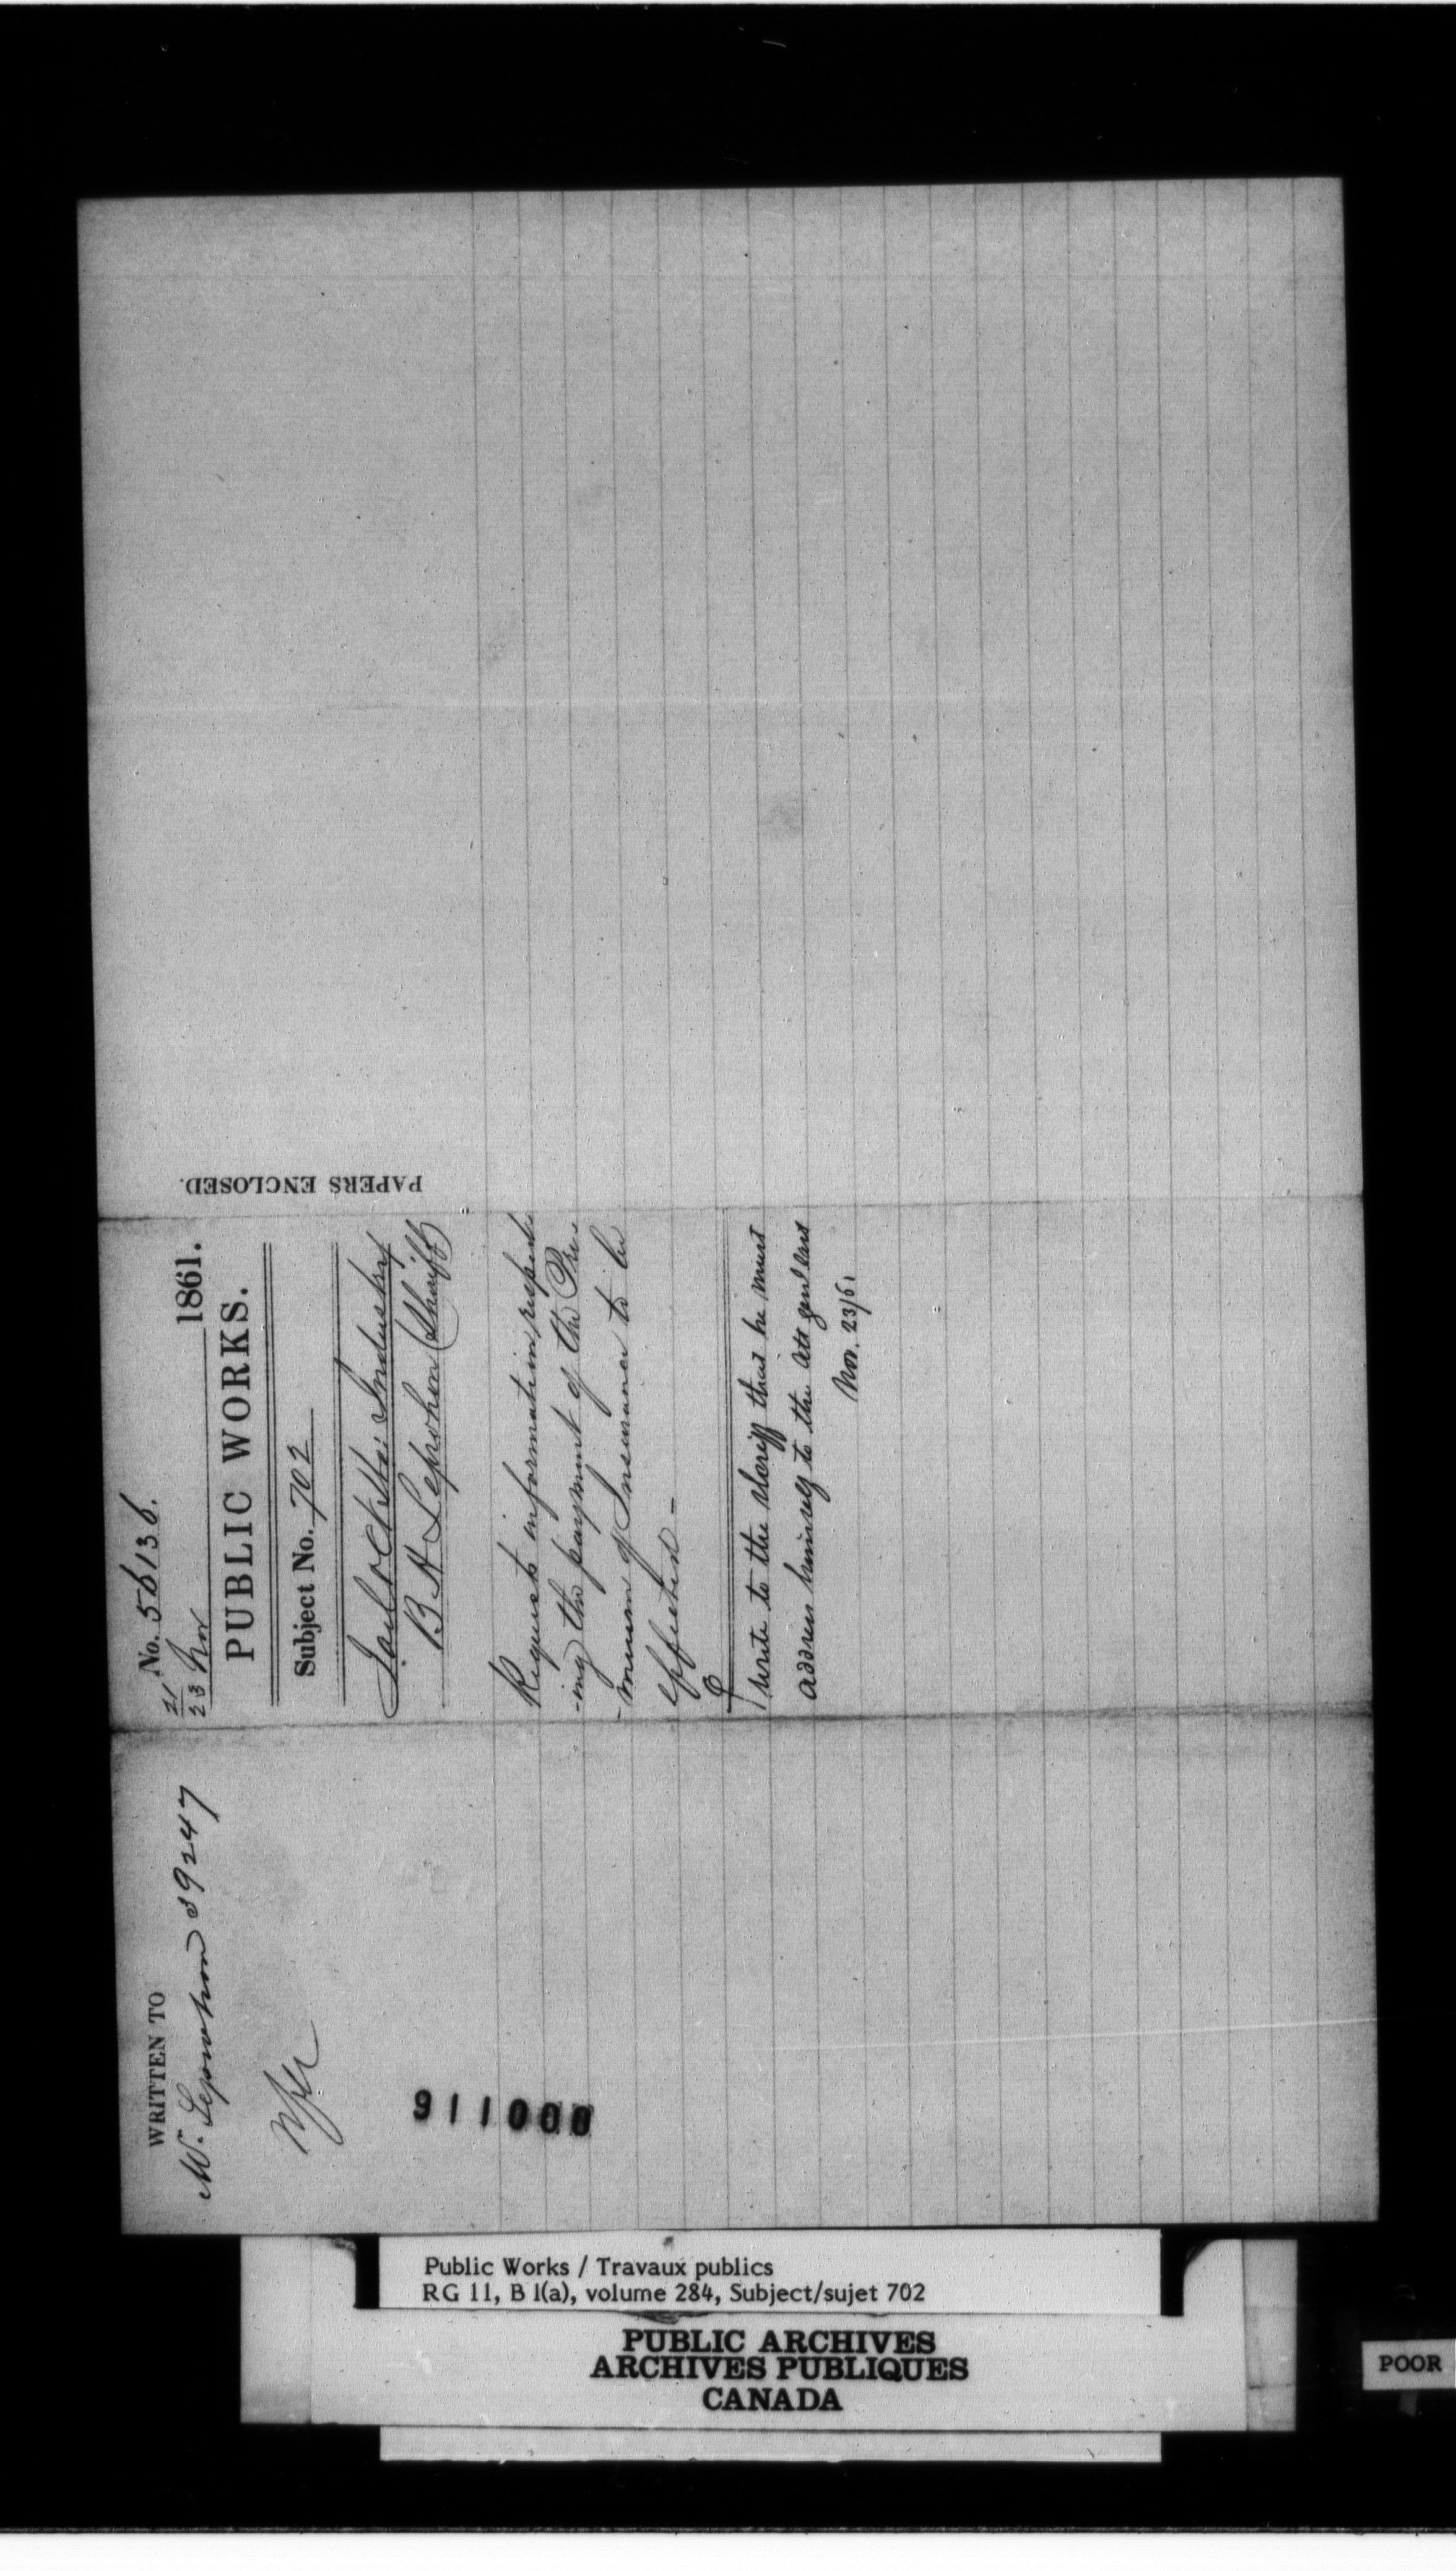 WRITTEN TO
Mr. Leprohon 39247
911000
No. 56136.
21
23 Nov 1861.
PUBLIC WORKS.
Subject No. 702
Gaol & Ct. Ho: Industry
B H Leprohon (Sheriff)
Requests information respect
-ing the payment of the Pre-
-mium of Insurance to be
effected -
Write to the sheriff that he must
address himself to the Att Genl East
Nov. 23/61
PAPERS ENCLOSED.
Public Works / Travaux publics
RG 11, B 1(a), volume 284, Subject/sujet 702
PUBLIC ARCHIVES
ARCHIVES PUBLIQUES
CANADA
POOR